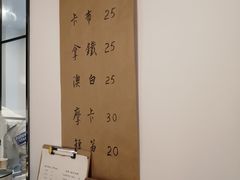 卡布 25
拿鐵 25
澳白 25
摩卡 30
20